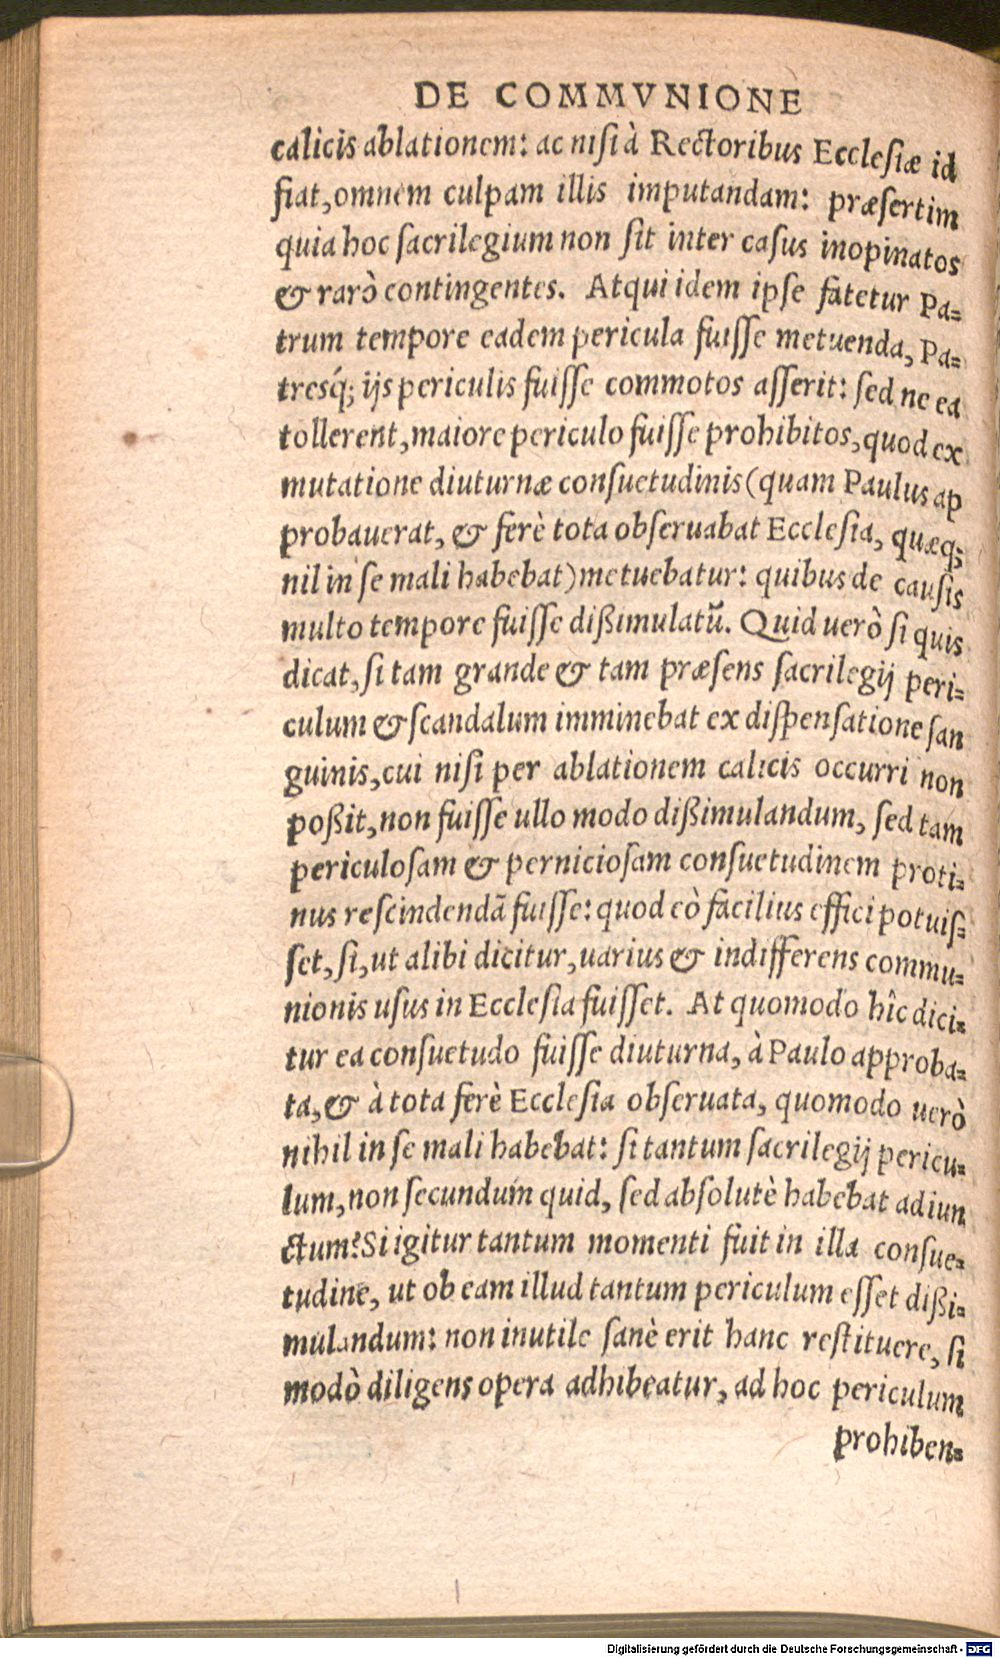 DE COMMVNIONE
calicis ablationem: ac nisi à Rectoribus Ecclesiæ id
fiat, omnem culpam illis imputandam: præsertim
quia hoc sacrilegium non sit inter casus inopinatos
& rarò contingentes. Atqui idem ipse fatetur Pa=
trum tempore eadem pericula fuisse metuenda, Pa=
tresq́; ijs periculis fuisse commotos asserit: sed ne ea
tollerent, maiore periculo fuisse prohibitos, quod ex
mutatione diuturnæ consuetudinis (quam Paulus ap
probauerat, & ferè tota obseruabat Ecclesia, quæq;
nil in se mali habebat) metuebatur: quibus de causis
multo tempore fuisse dißimulatũ. Quid uerò si quis
dicat, si tam grande & tam præsens sacrilegij peri=
culum & scandalum imminebat ex dispensatione san
guinis, cui nisi per ablationem calicis occurri non
poßit, non fuisse ullo modo dißimulandum, sed tam
periculosam & perniciosam consuetudinem proti=
nus rescindendã fuisse: quod eò facilius effici potuis=
set, si, ut alibi dicitur, uarius & indifferens commu=
nionis usus in Ecclesia fuisset. At quomodo hîc dici=
tur ea consuetudo fuisse diuturna, à Paulo approba=
ta, & à tota ferè Ecclesia obseruata, quomodo uerò
nihil in se mali habebat: si tantum sacrilegij pericu=
lum, non secundum quid, sed absolutè habebat adiun
ctum? Si igitur tantum momenti fuit in illa consue=
tudine, ut ob eam illud tantum periculum esset dißi=
mulandum: non inutile sanè erit hanc restituere, si
modò diligens opera adhibeatur, ad hoc periculum
prohiben=
Digitalisierung gefördert durch die Deutsche Forschungsgemeinschaft - DFG